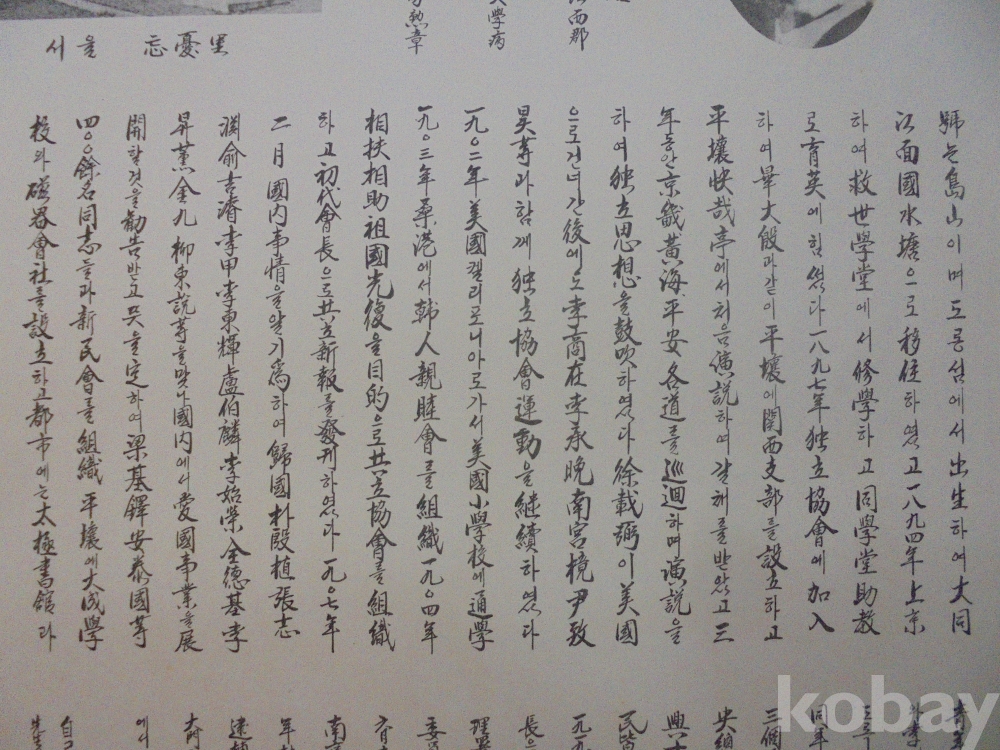 서울 忘憂里
江西郡
大學病
勲章
號는 島山이며 도롱섬에서 出生하여 大同
江面 國水塘으로 移住하였고 一八九四年 上京
하여 救世學堂에서 修學하고 同學堂 助敎
로 育英에 힘썼다 一八九七年 独立協會에 加入
하여 畢大殷과 같이 平壤에 関西支部를 設立하고
平壤 快哉亭에서 처음 演説하여 갈채를 받았고 三
年동안 京畿 黃海 平安 各道를 巡迴하며 演説을
하여 独立思想을 鼓吹하였다 徐載弼이 美國
으로 건너간 後에도 李商在 李承晩 南宮檍 尹致
昊等과 함께 独立協會運動을 継續하였다
一九○二年 美國 켈리포니아로 가서 美國小學校에 通學
一九○三年 桑港에서 韓人親睦會를 組織 一九○四年
相扶相助 祖國光復을 目的으로 共立協會를 組織
하고 初代會長으로 共立新報를 發刊하였다 一九○七年
二月 國內事情을 알기 爲하여 歸國 朴殷植 張志
淵 俞吉濬 李甲 李東輝 盧伯麟 李始榮 全德基 李
昇薫 金九 柳東説等을 맞나 國內에서 愛國事業을 展
開할것을 勸告받고 뜻을 定하여 梁基鐸 安泰國等
四○○餘名 同志들과 新民會를 組織 平壤에 大成學
校와 磁器會社를 設立하고 都市에는 太極書館과
同年
三個
央組
興士
民
一九
長으
理
委
南
年
에니
自己
kobay